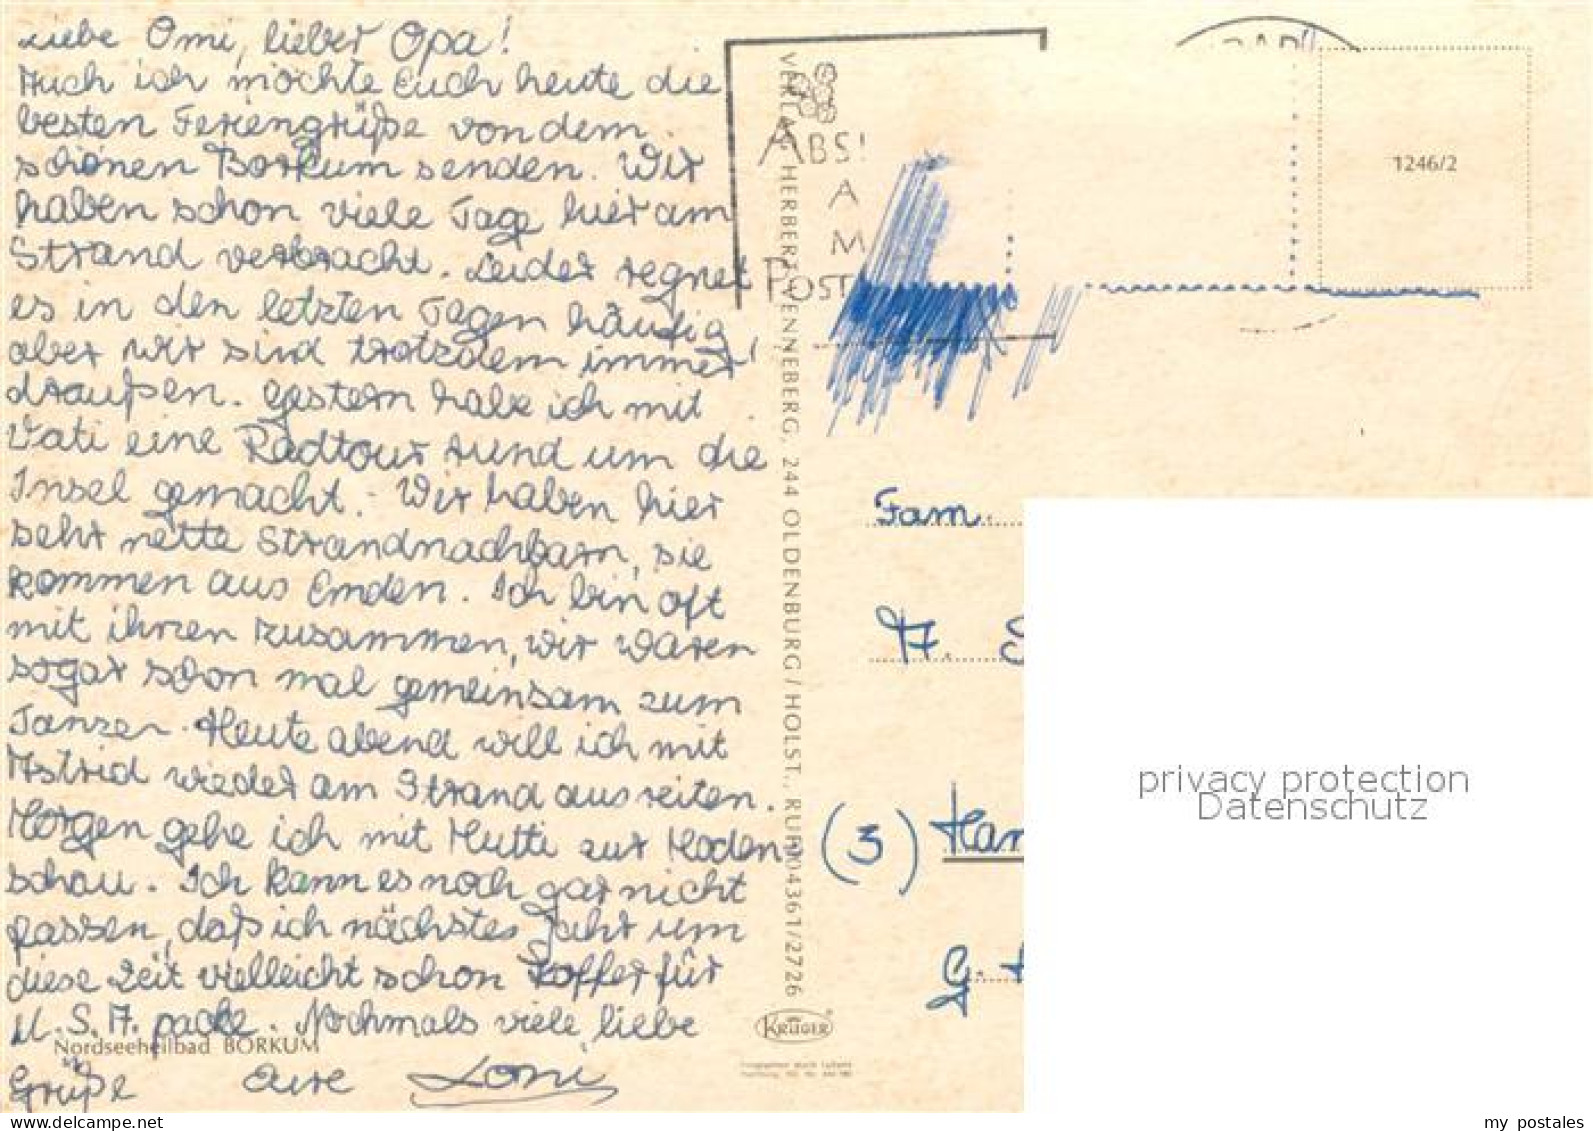 Liebe Omi, lieber Opa!
Auch ich möchte Euch heute die
besten Feriengrüße von dem
schönen Borkum senden. Wir
haben schon viele Tage hier am
Strand verbracht. Leider regnet
es in den letzten Tagen häufig,
aber wir sind trotzdem immer
draußen. Gestern habe ich mit
Vati eine Radtour rund um die
Insel gemacht. Wir haben hier
sehr nette Strandnachbarn, sie
kommen aus Emden. Ich bin oft
mit ihnen zusammen, wir waren
sogar schon mal gemeinsam zum
Tanzen. Heute abend will ich mit
Astrid wieder am Strand ausreiten.
Morgen gehe ich mit Mutti zur Moden-
schau. Ich kann es noch gar nicht
fassen, daß ich nächstes Jahr um
diese Zeit vielleicht schon Koffer für
U.S.A. packe. Nochmals viele liebe
Grüße Eure Loni
Nordseeheilbad BORKUM
VERLAG HERBERT WENNEBERG, 244 OLDENBURG / HOLST., RUF 04361/2726
KRÜGER
ABS!
A
M
POST
1246/2
Fam.
A. S
(3) Han
G.
privacy protection
Datenschutz
my postales